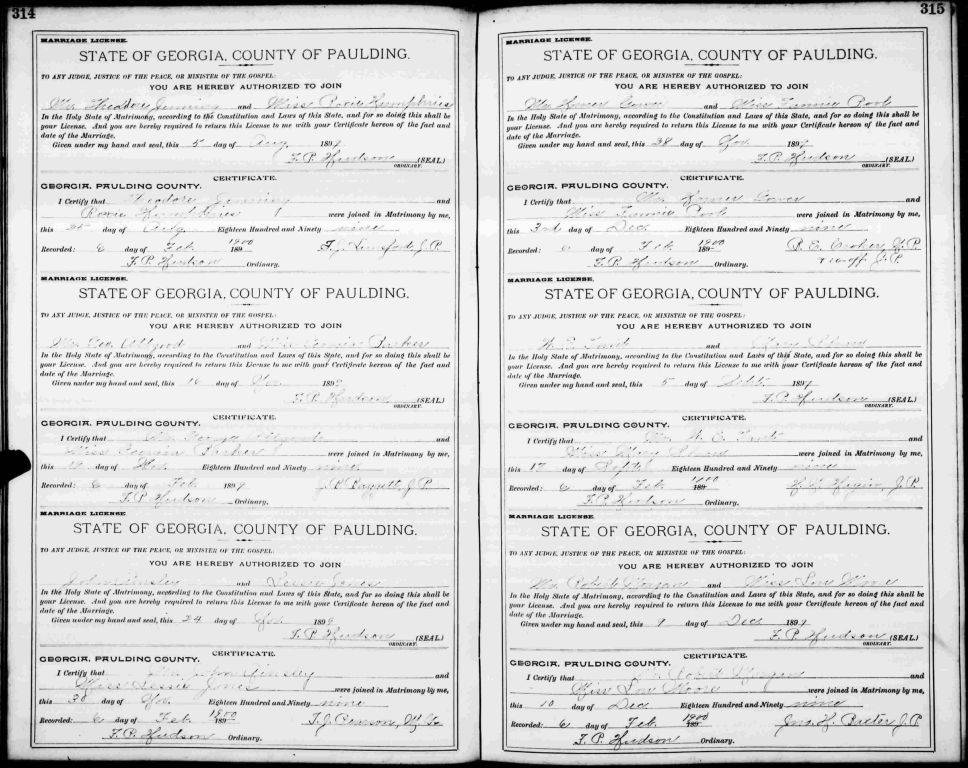 314
MARRIAGE LICENSE.
STATE OF GEORGIA, COUNTY OF PAULDING.
TO ANY JUDGE, JUSTICE OF THE PEACE, OR MINISTER OF THE GOSPEL:
YOU ARE HEREBY AUTHORIZED TO JOIN
Mr Theodore Jenning and Miss Roxie Humphries
In the Holy State of Matrimony, according to the Constitution and Laws of this State, and for so doing this shall be
your License. And you are hereby required to return this License to me with your Certificate hereon of the fact and
date of the Marriage.
Given under my hand and seal, this 5 day of Aug 1899
F. P. Hudson (SEAL)
ORDINARY.
CERTIFICATE.
GEORGIA, PAULDING COUNTY.
I Certify that Theodore Jenning and
Roxie Humphries were joined in Matrimony by me,
this day of Aug Eighteen Hundred and Ninety nine
Recorded: 6 day of Feb 1900 189
F. P. Hudson Ordinary.
MARRIAGE LICENSE.
STATE OF GEORGIA, COUNTY OF PAULDING.
TO ANY JUDGE, JUSTICE OF THE PEACE, OR MINISTER OF THE GOSPEL:
YOU ARE HEREBY AUTHORIZED TO JOIN
Mr Geo and Miss Parker
In the Holy State of Matrimony, according to the Constitution and Laws of this State, and for so doing this shall be
your License. And you are hereby required to return this License to me with your Certificate hereon of the fact and
date of the Marriage.
Given under my hand and seal, this 16 day of 1899
F. P. Hudson (SEAL)
ORDINARY.
CERTIFICATE.
GEORGIA, PAULDING COUNTY.
I Certify that and
Miss Parker were joined in Matrimony by me,
this day of Eighteen Hundred and Ninety nine
Recorded: 6 day of Feb 1899 J. P. Baggett, J. P.
F. P. Hudson Ordinary.
MARRIAGE LICENSE.
STATE OF GEORGIA, COUNTY OF PAULDING.
TO ANY JUDGE, JUSTICE OF THE PEACE, OR MINISTER OF THE GOSPEL:
YOU ARE HEREBY AUTHORIZED TO JOIN
John and Lessie Jones
In the Holy State of Matrimony, according to the Constitution and Laws of this State, and for so doing this shall be
your License. And you are hereby required to return this License to me with your Certificate hereon of the fact and
date of the Marriage.
Given under my hand and seal, this 24 day of Nov 1899
F. P. Hudson (SEAL)
ORDINARY.
CERTIFICATE.
GEORGIA, PAULDING COUNTY.
I Certify that Mr John and
Miss Lessie Jones were joined in Matrimony by me,
this 30 day of Nov. Eighteen Hundred and Ninety nine
Recorded: 6 day of Feb 1900 189 T. J. Pearson, M. G.
F. P. Hudson Ordinary.
315
MARRIAGE LICENSE.
STATE OF GEORGIA, COUNTY OF PAULDING.
TO ANY JUDGE, JUSTICE OF THE PEACE, OR MINISTER OF THE GOSPEL:
YOU ARE HEREBY AUTHORIZED TO JOIN
Mr Homer and Miss Fannie
In the Holy State of Matrimony, according to the Constitution and Laws of this State, and for so doing this shall be
your License. And you are hereby required to return this License to me with your Certificate hereon of the fact and
date of the Marriage.
Given under my hand and seal, this 28 day of Nov. 1899
F. P. Hudson (SEAL)
ORDINARY.
CERTIFICATE.
GEORGIA, PAULDING COUNTY.
I Certify that Mr Homer and
Miss Fannie were joined in Matrimony by me,
this 3rd day of Dec Eighteen Hundred and Ninety nine
Recorded: 6 day of Feb 1900 189
F. P. Hudson Ordinary.
MARRIAGE LICENSE.
STATE OF GEORGIA, COUNTY OF PAULDING.
TO ANY JUDGE, JUSTICE OF THE PEACE, OR MINISTER OF THE GOSPEL:
YOU ARE HEREBY AUTHORIZED TO JOIN
and Mary
In the Holy State of Matrimony, according to the Constitution and Laws of this State, and for so doing this shall be
your License. And you are hereby required to return this License to me with your Certificate hereon of the fact and
date of the Marriage.
Given under my hand and seal, this 5 day of Sept. 1899
F. P. Hudson (SEAL)
ORDINARY.
CERTIFICATE.
GEORGIA, PAULDING COUNTY.
I Certify that Mr and
Miss Mary were joined in Matrimony by me,
this 17 day of Sept Eighteen Hundred and Ninety nine
Recorded: 6 day of Feb 1900 189 J. P.
F. P. Hudson Ordinary.
MARRIAGE LICENSE.
STATE OF GEORGIA, COUNTY OF PAULDING.
TO ANY JUDGE, JUSTICE OF THE PEACE, OR MINISTER OF THE GOSPEL:
YOU ARE HEREBY AUTHORIZED TO JOIN
Mr Robert Morgan and Miss Lou Moore
In the Holy State of Matrimony, according to the Constitution and Laws of this State, and for so doing this shall be
your License. And you are hereby required to return this License to me with your Certificate hereon of the fact and
date of the Marriage.
Given under my hand and seal, this 9 day of Dec 1899
F. P. Hudson (SEAL)
ORDINARY.
CERTIFICATE.
GEORGIA, PAULDING COUNTY.
I Certify that Robert Morgan and
Miss Lou Moore were joined in Matrimony by me,
this 10 day of Dec. Eighteen Hundred and Ninety nine
Recorded: 6 day of Feb. 1900 189 Jno. H. Baxter J. P.
F. P. Hudson Ordinary.